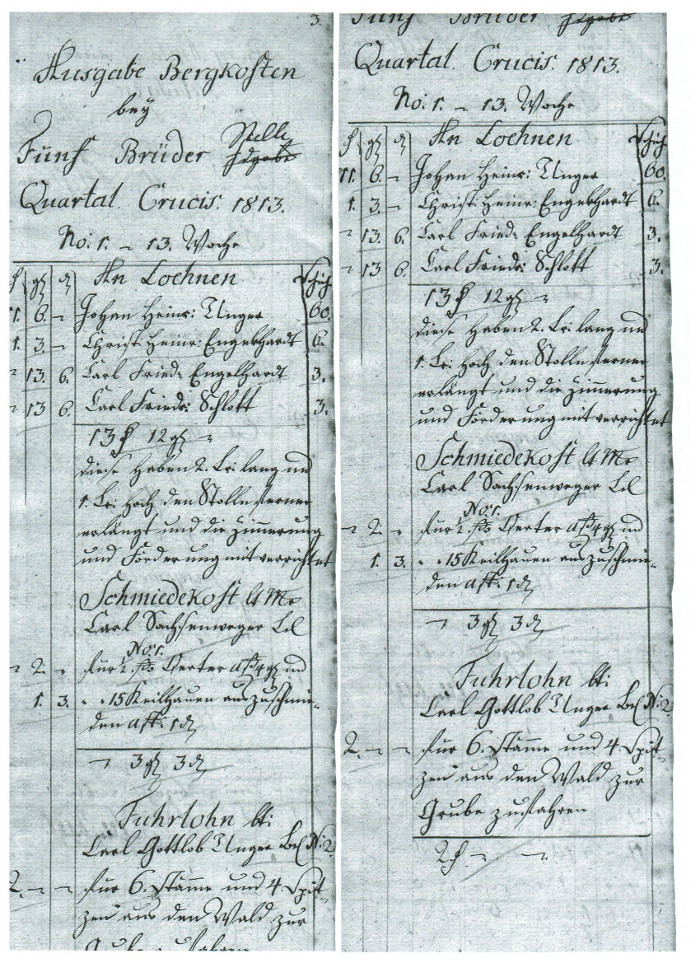 3.
Ausgabe Bergkosten
bey
Fünf Brüder Stolln
Quartal. Crucis: 1813.
No: 1. – 13. Woche
f gr d An Loehnen Schch
11. 6. – Johan Heinr: Unger 60.
1. 3. – Christ: Heinr: Engelhardt 6.
– 13. 6. Carl Fried: Engelhardt 3.
– 13 6. Carl Friedr: Schlott 3.
13 f 12 gr –
diese haben 2. Lr: lang und
1. Lr: hoch den Stolln ferner
erlängt und die Zimmerung
und Förderung mit verrichtet
Schmiedekost
Carl Sachsenweger
No: 1.
– 2. – für Oerter a 4 gr und
1. 3. " " 15 Keilhauen auszuschmie-
den a 1 d
– 3 gr 3 d
Fuhrlohn lt:
Carl Gottlob Unger Bel N: 2.
2. – – für 6. Stämme und 4 Spit-
zen aus den Wald zur
Grube zu fahren
Fünf Brüder
Quartal. Crucis: 1813.
No: 1. – 13. Woche
f gr d An Loehnen Schch
11. 6. – Johan Heinr: Unger 60.
1. 3. – Christ: Heinr: Engelhardt 6.
– 13. 6. Carl Fried: Engelhardt 3.
– 13 6. Carl Friedr: Schlott 3.
13 f 12 gr –
diese haben 2. Lr: lang und
1. Lr: hoch den Stolln ferner
erlängt und die Zimmerung
und Förderung mit verrichtet
Schmiedekost
Carl Sachsenweger
No: 1.
– 2. – für Oerter a 4 gr und
1. 3. " " 15 Keilhauen auszuschmie-
den a 1 d
– 3 gr 3 d
Fuhrlohn lt:
Carl Gottlob Unger Bel N: 2.
2. – – für 6. Stämme und 4 Spit-
zen aus den Wald zur
Grube zu fahren
2 f – –